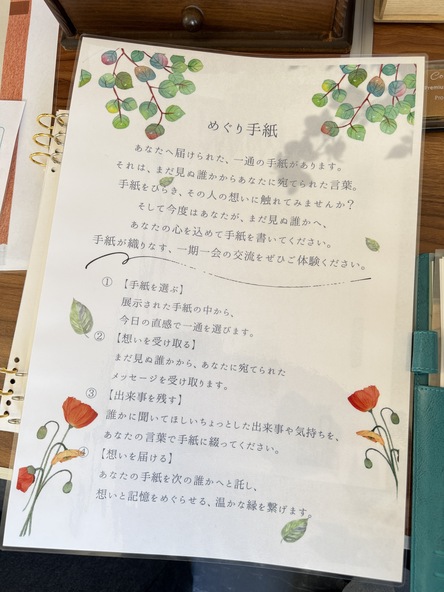 めぐり手紙
あなたへ届けられた、一通の手紙があります。
それは、まだ見ぬ誰かからあなたに宛てられた言葉。
手紙をひらき、その人の想いに触れてみませんか？
そして今度はあなたが、まだ見ぬ誰かへ、
あなたの心を込めて手紙を書いてください。
手紙が織りなす、一期一会の交流をぜひご体験ください。
① 【手紙を選ぶ】
展示された手紙の中から、
今日の直感で一通を選びます。
② 【想いを受け取る】
まだ見ぬ誰かから、あなたに宛てられた
メッセージを受け取ります。
③ 【出来事を残す】
誰かに聞いてほしいちょっとした出来事や気持ちを、
あなたの言葉で手紙に綴ってください。
④ 【想いを届ける】
あなたの手紙を次の誰かへと託し、
想いと記憶をめぐらせる、温かな縁を繋げます。